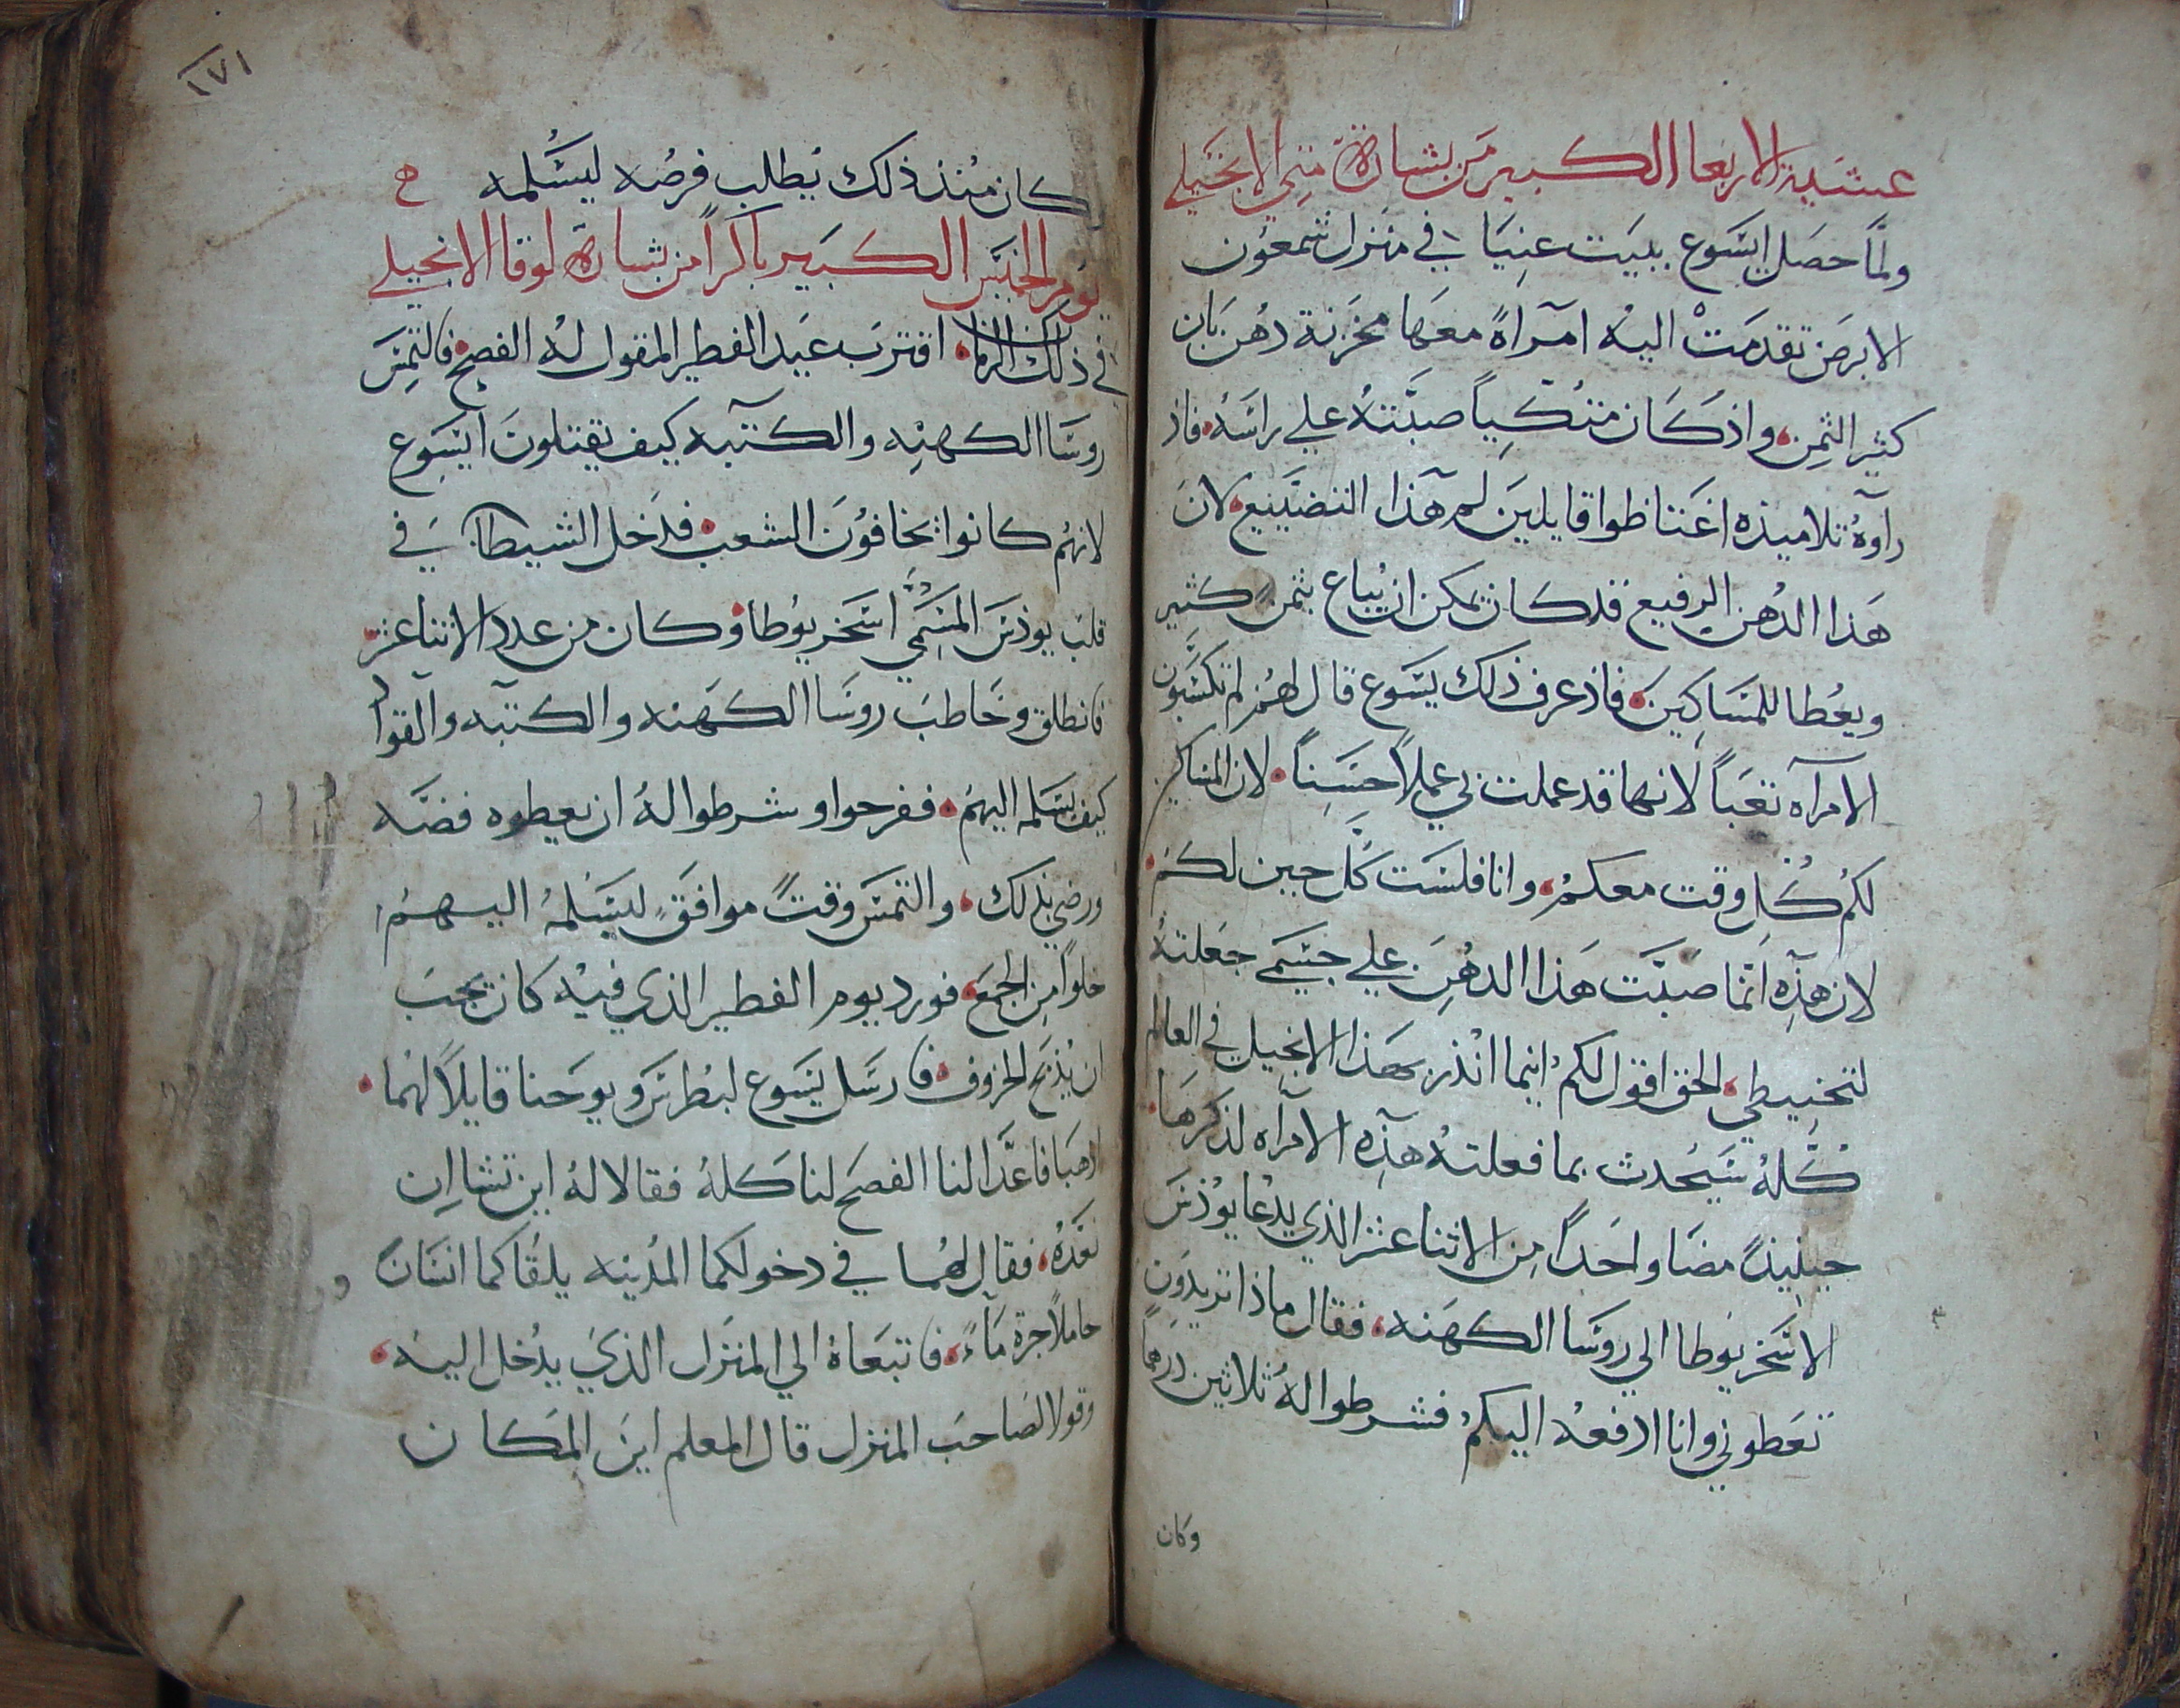 عشية الاربعا الكبير من بشارة متي الانجيلي
ولما حصل ايسوع ببيت عنيا في منزل شمعون
الابرص تقدمت اليه امراة معها مخزنة دهن بان
كثير الثمن واذ كان متكيا صبته علي راسه فاذ
راوه تلاميذه اغتاظوا قايلين لم هذا التضييع لان
هذا الدهن الرفيع قد كان يمكن ان يباع بثمن كثير
ويعطا للمساكين فاذ عرف ذلك يسوع قال لهم لم تكسبون
الامراه تعبا لانها قد عملت بي عملا حسنا لان المساكين
لكم كل وقت معكم وانا فلست كل حين لكم
لان هذه انما صبت هذا الدهن علي جسمي جعلته
لتحنيطي الحق اقول لكم اينما انذر بهذا الانجيل في العالم
كله سيحدث بما فعلته هذه الامراه لذكرها
حينيذ مضا واحدا من الاثنا عشر الذي يدعا يوذس
الاسخريوطا الي روسا الكهنه فقال ماذا تريدون
تعطوني وانا ادفعه اليكم فشرطوا له ثلاثين درهما
وكان
١٧١
وكان منذ ذلك يطلب فرصه ليسلمه
يوم الخميس الكبير باكرا من بشارة لوقا الانجيلي
في ذلك الزمان اقترب عيد الفطير المقول له الفصح فالتمس
روسا الكهنه والكتبه كيف يقتلون ايسوع
لانهم كانوا يخافون الشعب فدخل الشيطان في
قلب يوذس المسمي اسخريوطا وكان من عدد الاثنا عشر
فانطلق وخاطب روسا الكهنه والكتبه والقواد
كيف يسلمه اليهم ففرحوا وشرطوا له ان يعطوه فضه
ورضي بذلك والتمس وقتا موافق ليسلمه اليهم
خلوا من الجمع فورد يوم الفطير الذي فيه كان يجب
ان يذبح الخروف فارسل يسوع لبطرس ويوحنا قايلا لهما
اذهبا فاعدا لنا الفصح لناكله فقالا له اين تشا ان
نعده فقال لهما في دخولكما المدينه يلقاكما انسان
حاملا جرة ماء فاتبعاه الي المنزل الذي يدخل اليه
وقولا لصاحب المنزل قال المعلم اين المكان